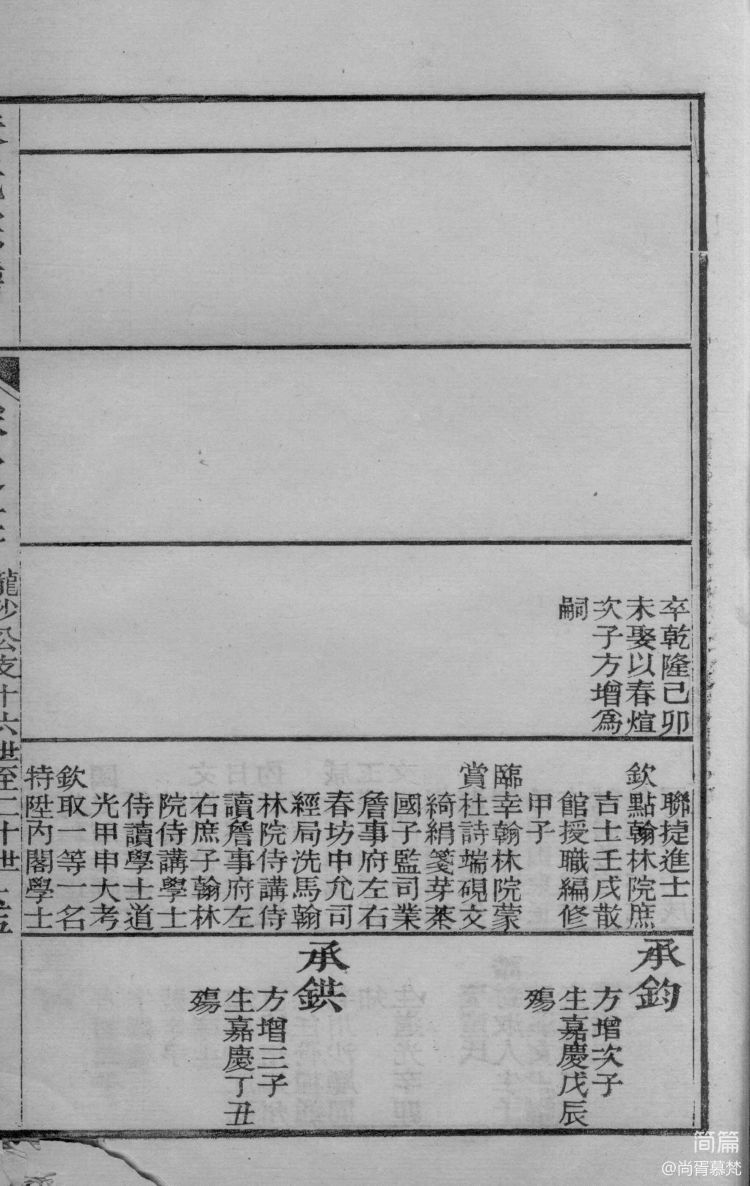 卒乾隆己卯
未娶以春煊
次子方增爲
嗣
聯捷進士
欽點翰林院庶
吉士壬戌散
館授職編修
甲子
臨幸翰林院蒙
賞杜詩端硯文
綺絹箋芽茶
國子監司業
詹事府左右
春坊中允司
經局洗馬翰
林院侍講侍
讀詹事府左
右庶子翰林
院侍講學士
侍讀學士道
光甲申大考
欽取一等一名
特陞內閣學士
承鈞
方增次子
生嘉慶戊辰
殤
承鉷
方增三子
生嘉慶丁丑
殤
龍沙公支十六世至二十世
简篇
@尚胥慕梵